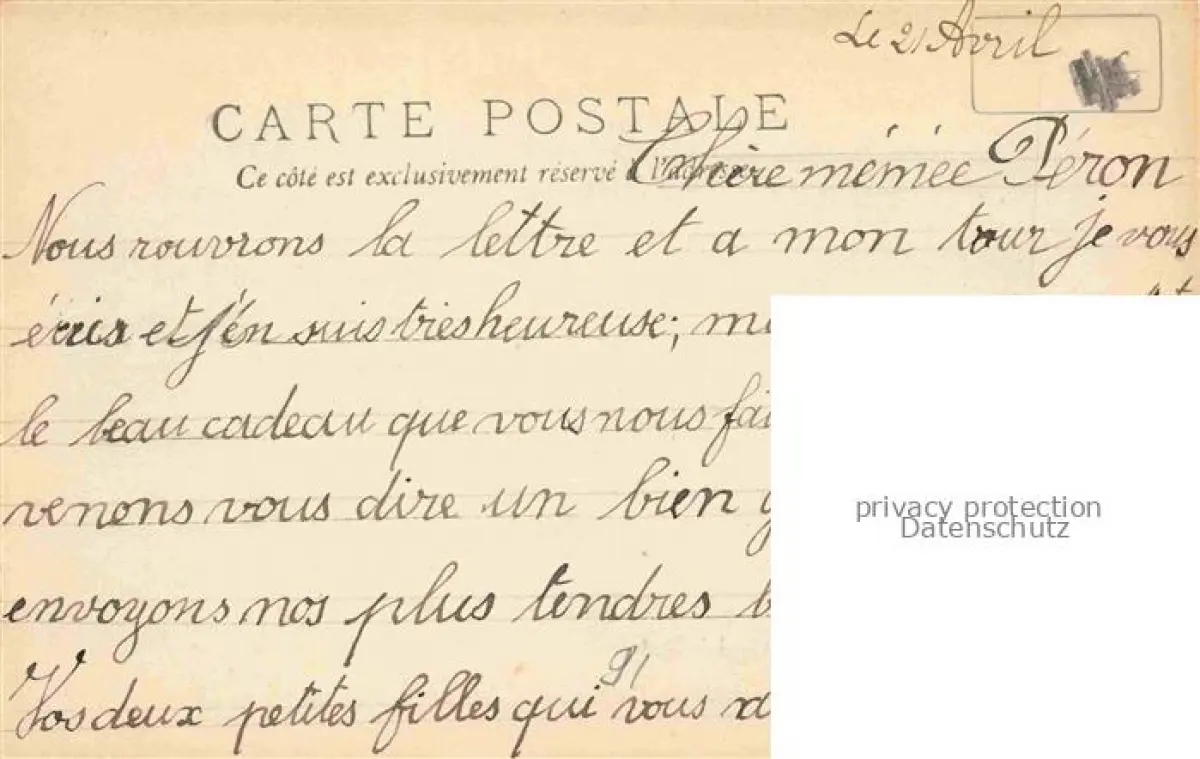 Le 21 Avril
CARTE POSTALE
Ce côté est exclusivement réservé à l'adresse
Chère mémée Péron
Nous rouvrons la lettre et a mon tour je vous
écris et j'én suis tres heureuse;
le beau cadeau que vous nous
venons vous dire un bien
envoyons nos plus tendres
91
Vos deux petites filles qui vous
privacy protection
Datenschutz